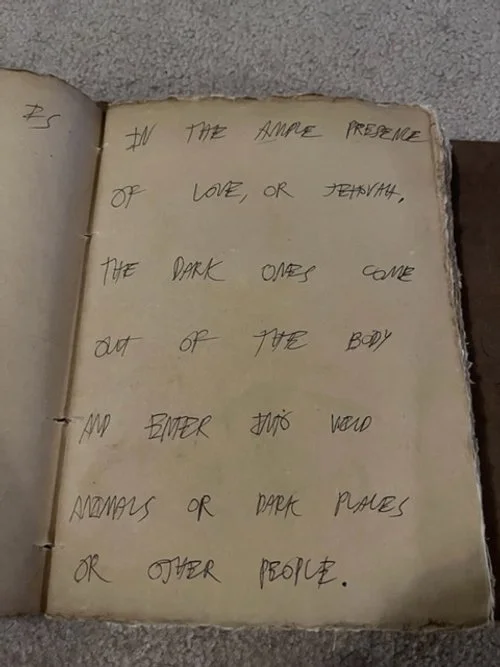 IS
IN THE AMPLE PRESENCE
OF LOVE, OR JEHOVAH,
THE DARK ONES COME
OUT OF THE BODY
AND ENTER INTO WILD
ANIMALS OR DARK PLACES
OR OTHER PEOPLE.